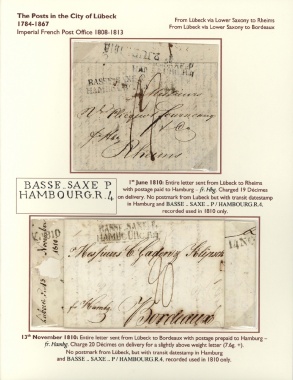 The Posts in the City of Lübeck
1784-1867
Imperial French Post Office 1808-1813
From Lübeck via Lower Saxony to Rheims
From Lübeck via Lower Saxony to Bordeaux
BASSE SAXE P
HAMBOURG.R.4
Messieurs
Rheims
1st June 1810: Entire letter sent from Lübeck to Rheims
with postage paid to Hamburg - fr. Hbg. Charged 19 Décimes
on delivery. No postmark from Lubeck but with transit datestamp
in Hamburg and BASSE .. SAXE .. P / HAMBOURG.R.4.
recorded used in 1810 only.
BASSE..SAXE P
HAMBOURG.R.4
BASSE..SAXE P
HAMBOURG.R.4
Messieurs
fr Hambg.
Bordeaux
13th November 1810: Entire letter sent from Lübeck to Bordeaux with postage prepaid to Hamburg –
fr. Hambg. Charge 20 Décimes on delivery for a slightly above weight letter (7.6g. +).
No postmark from Lubeck, but with transit datestamp in Hamburg
and BASSE .. SAXE .. P / HAMBOURG.R.4. recorded used in 1810 only.